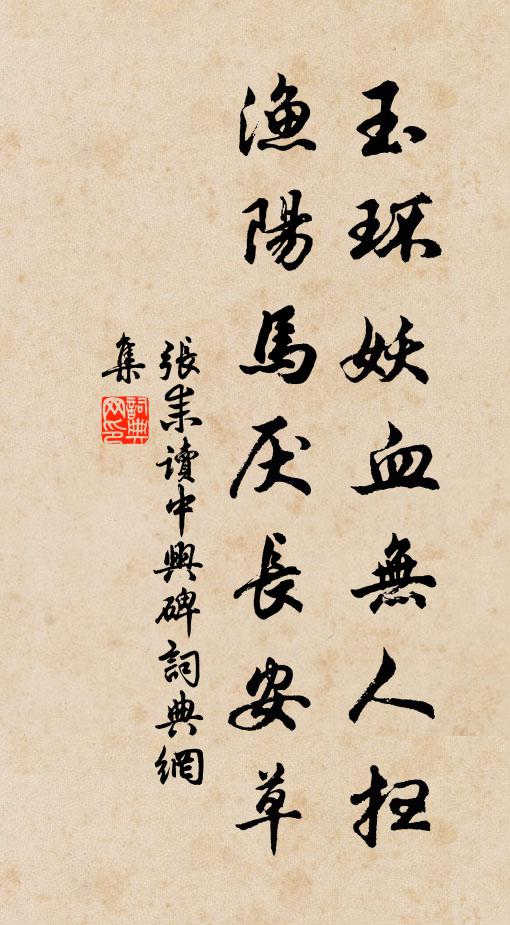 玉环妖血無人扫
漁陽馬厌長安草
張耒讀中興碑詞典網
集
詞典网印